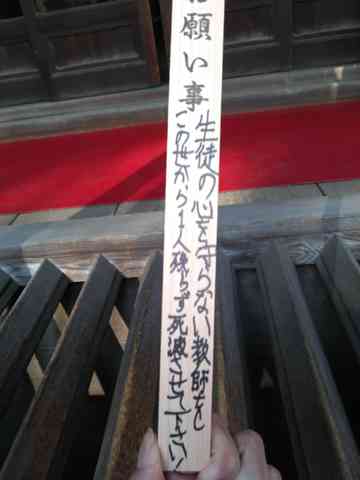 お願い事
生徒の心を守らない教師を
この世から1人残らず死滅させて下さい!